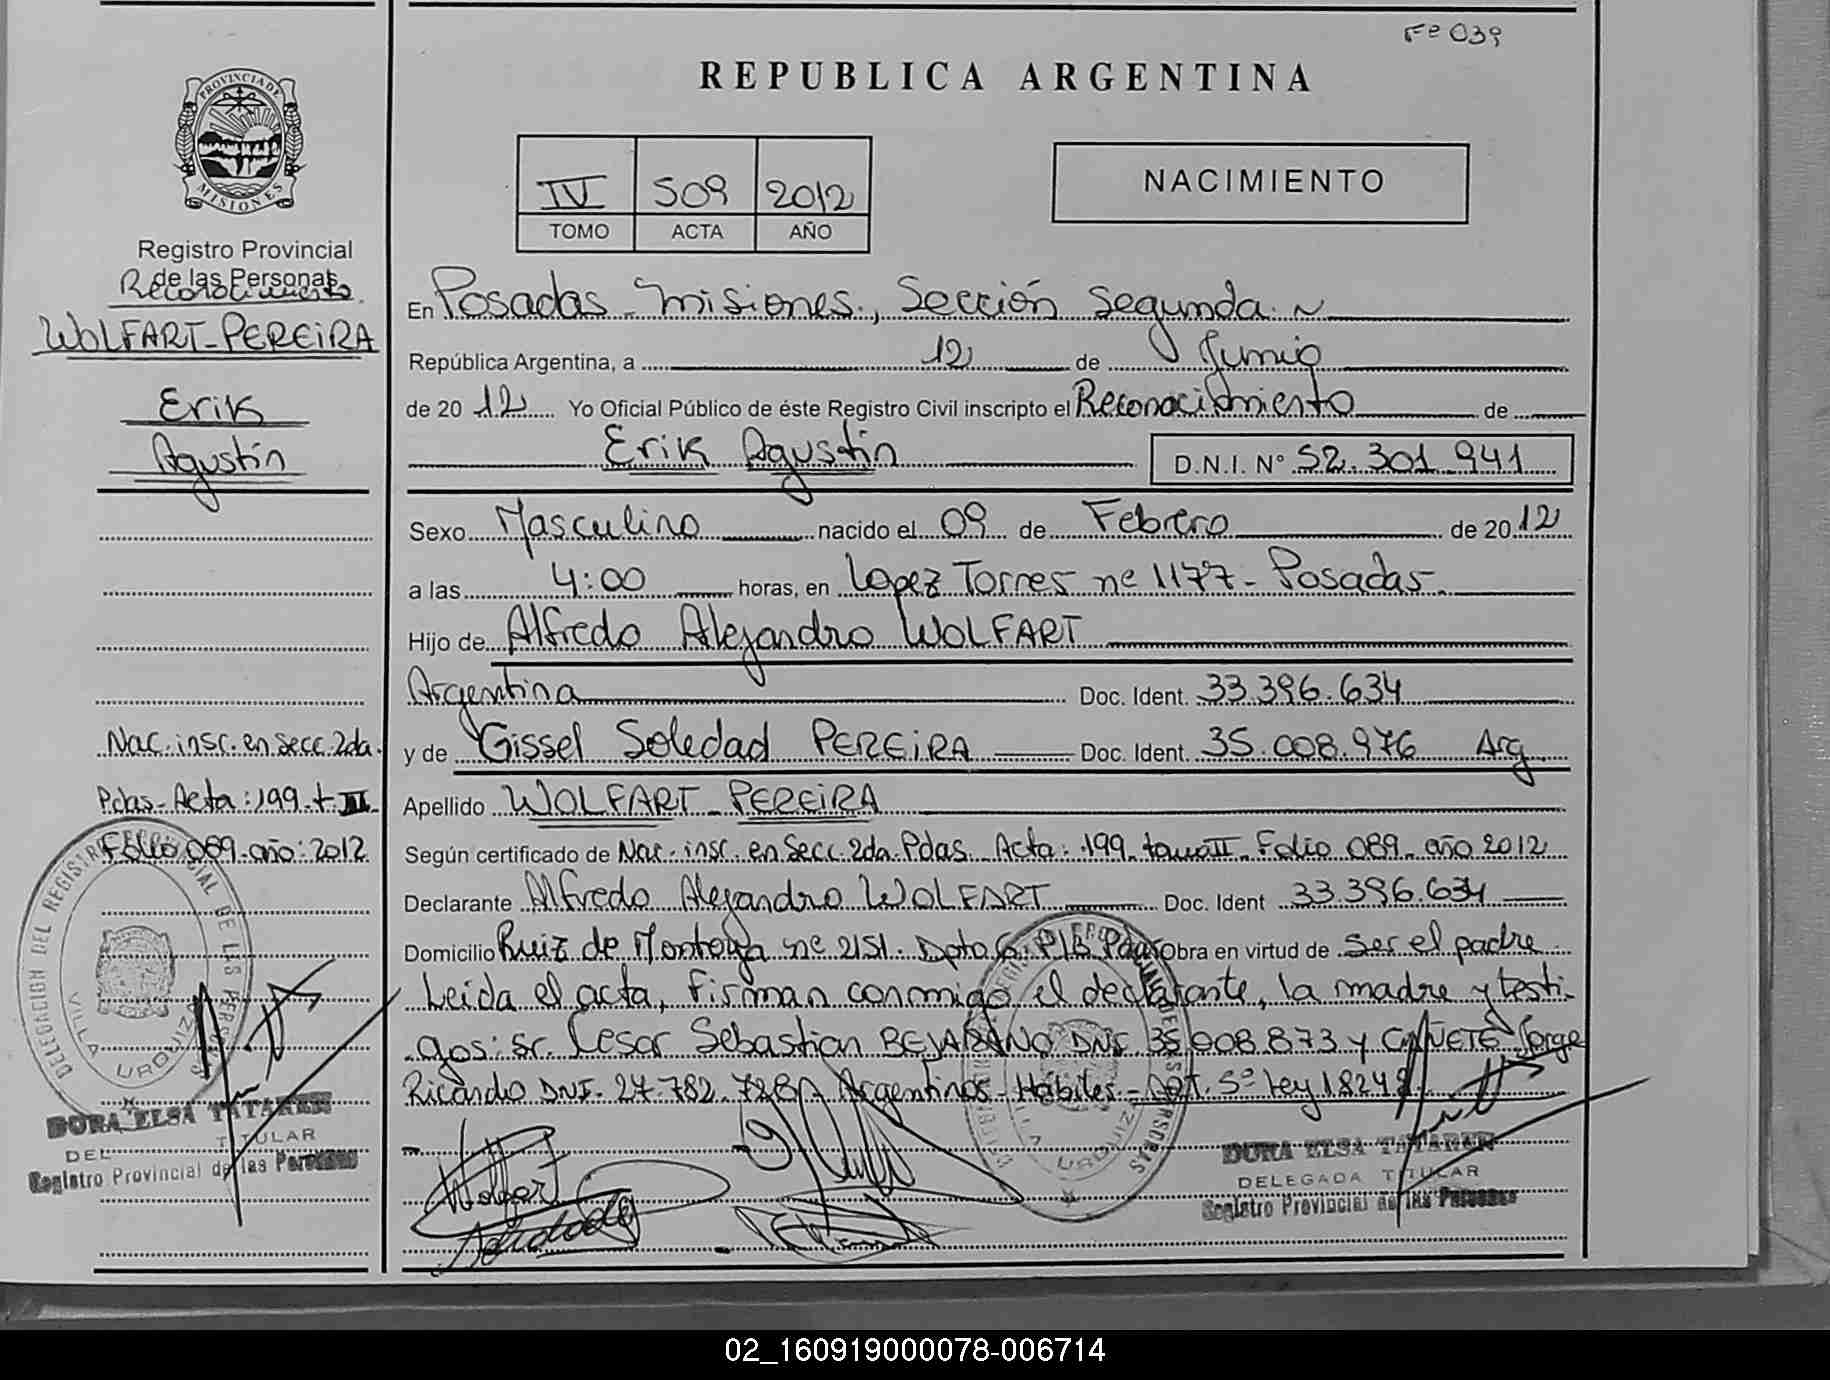 Fº 039
REPUBLICA ARGENTINA
PROVINCIA DE
MISIONES
IV 509 2012
TOMO ACTA AÑO
NACIMIENTO
Registro Provincial
de las Personas
Reconocimiento
WOLFART-PEREIRA
Erik
Agustín
Nac. insc. en Secc. 2da.
Pdas- Acta: 199. t II
Folio 089. año: 2012.
DELEGACION DEL REGISTRO PROVINCIAL DE LAS PERSONAS
VILLA URQUIZA
DORA ELSA TATAREN
DEL TITULAR
Registro Provincial de las Personas
En Posadas - Misiones., Sección Segunda. ~
República Argentina, a 12 de Junio
de 20 12 Yo Oficial Público de éste Registro Civil inscripto el Reconocimiento de
Erik Agustín D.N.I. N° 52.301.941
Sexo Masculino nacido el 09 de Febrero de 20 12
a las 4:00 horas, en Lopez Torres nº 1177- Posadas.
Hijo de Alfredo Alejandro WOLFART
Argentina Doc. Ident. 33.396.634
y de Gissel Soledad PEREIRA Doc. Ident. 35.008.976 Arg
Apellido WOLFART - PEREIRA
Según certificado de Nac. insc. en Secc. 2da. Pdas. Acta: 199. tomo II. Folio 089. año 2012
Declarante Alfredo Alejandro WOLFART Doc. Ident 33.396.634
Domicilio Ruiz de Montoya nº 2151. Dpto 6. P/B Pdas Obra en virtud de ser el padre
Leida el acta, Firman conmigo el declarante, la madre y testi-
gos: Sr. Cesar Sebastian BEJARANO DNI. 35.008.873 y CAÑETE Jorge
Ricardo DNI. 27.782.728 Argentinos - Hábiles - Art. 5º Ley 18248
DORA ELSA TATAREN
DELEGADA TITULAR
Registro Provincial de las Personas
Wolfart
02_160919000078-006714